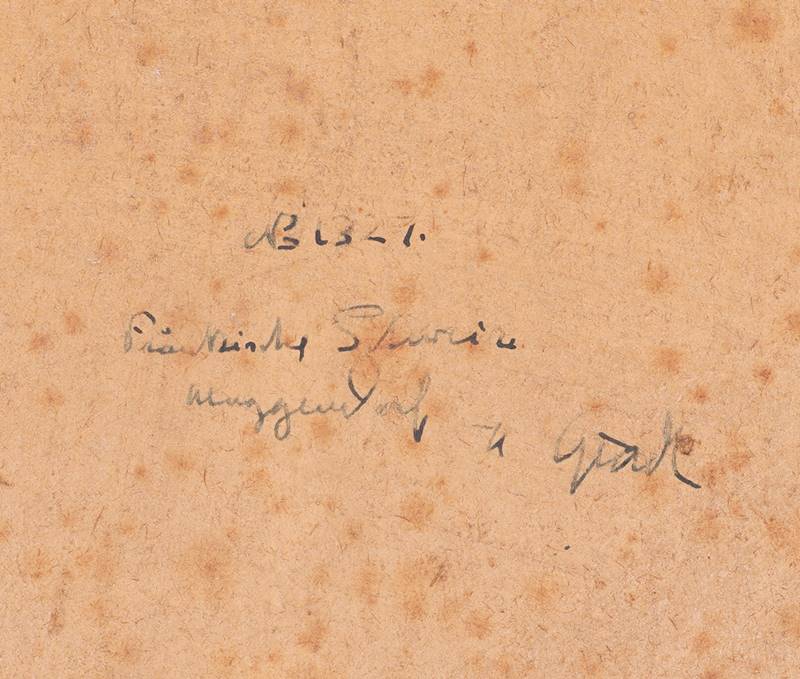 NB 1327.
Fränkische Schweiz
Muggendorf
H Gradl